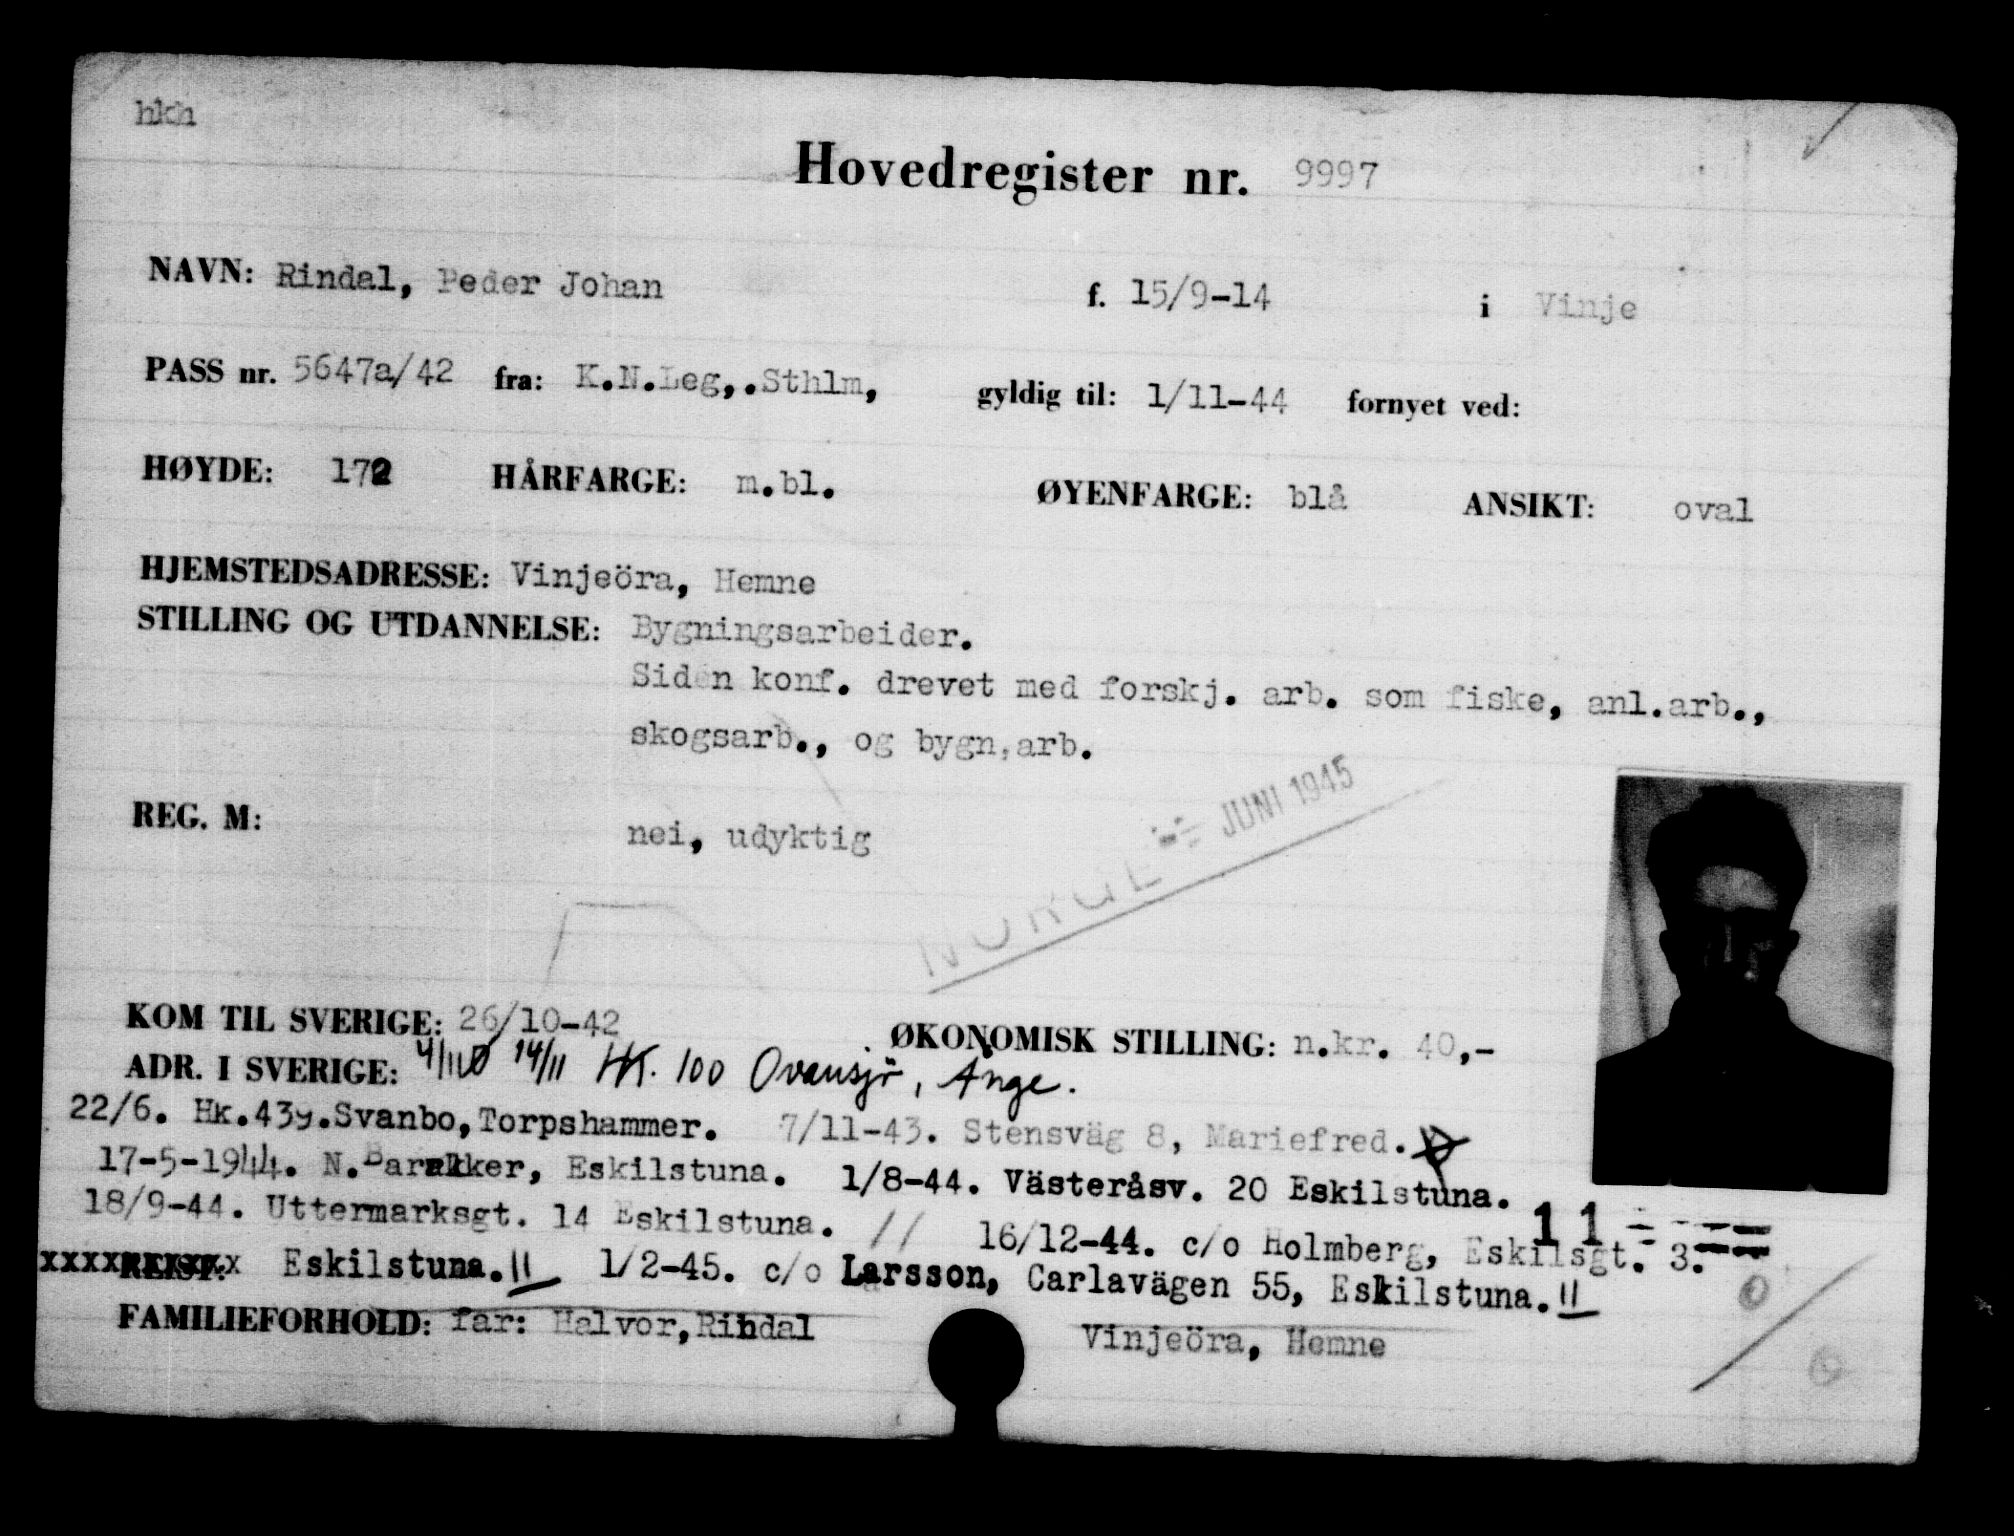 hkh
Hovedregister nr. 9997
NAVN: Rindal, Peder Johan f. 15/9-14 i Vinje
PASS nr. 5647a/42 fra: K.N.Leg,.Sthlm, gyldig til: 1/11-44 fornyet ved:
HØYDE: 172 HÅRFARGE: m.bl. ØYENFARGE: blå ANSIKT: oval
HJEMSTEDSADRESSE: Vinjeöra, Hemne
STILLING OG UTDANNELSE: Bygningsarbeider.
Siden konf. drevet med forskj. arb. som fiske, anl.arb.,
skogsarb., og bygn,arb.
REG. M: nei, udyktig
NORGE JUNI 1945
KOM TIL SVERIGE: 26/10-42 ØKONOMISK STILLING: n.kr. 40,-
ADR. I SVERIGE: 14/11 HK. 100 Ovansjö, Ånge.
22/6. Hk.439.Svanbo,Torpshammer. 7/11-43. Stensväg 8, Mariefred.
17-5-1944. N.Barakker, Eskilstuna. 1/8-44. Västeråsv. 20 Eskilstuna.
18/9-44. Uttermarksgt. 14 Eskilstuna. // 16/12-44. c/o Holmberg, Eskilsgt. 3. 11
REIST: Eskilstuna. 1/2-45. c/o Larsson, Carlavägen 55, Eskilstuna.
FAMILIEFORHOLD: far: Halvor, Rindal Vinjeöra, Hemne